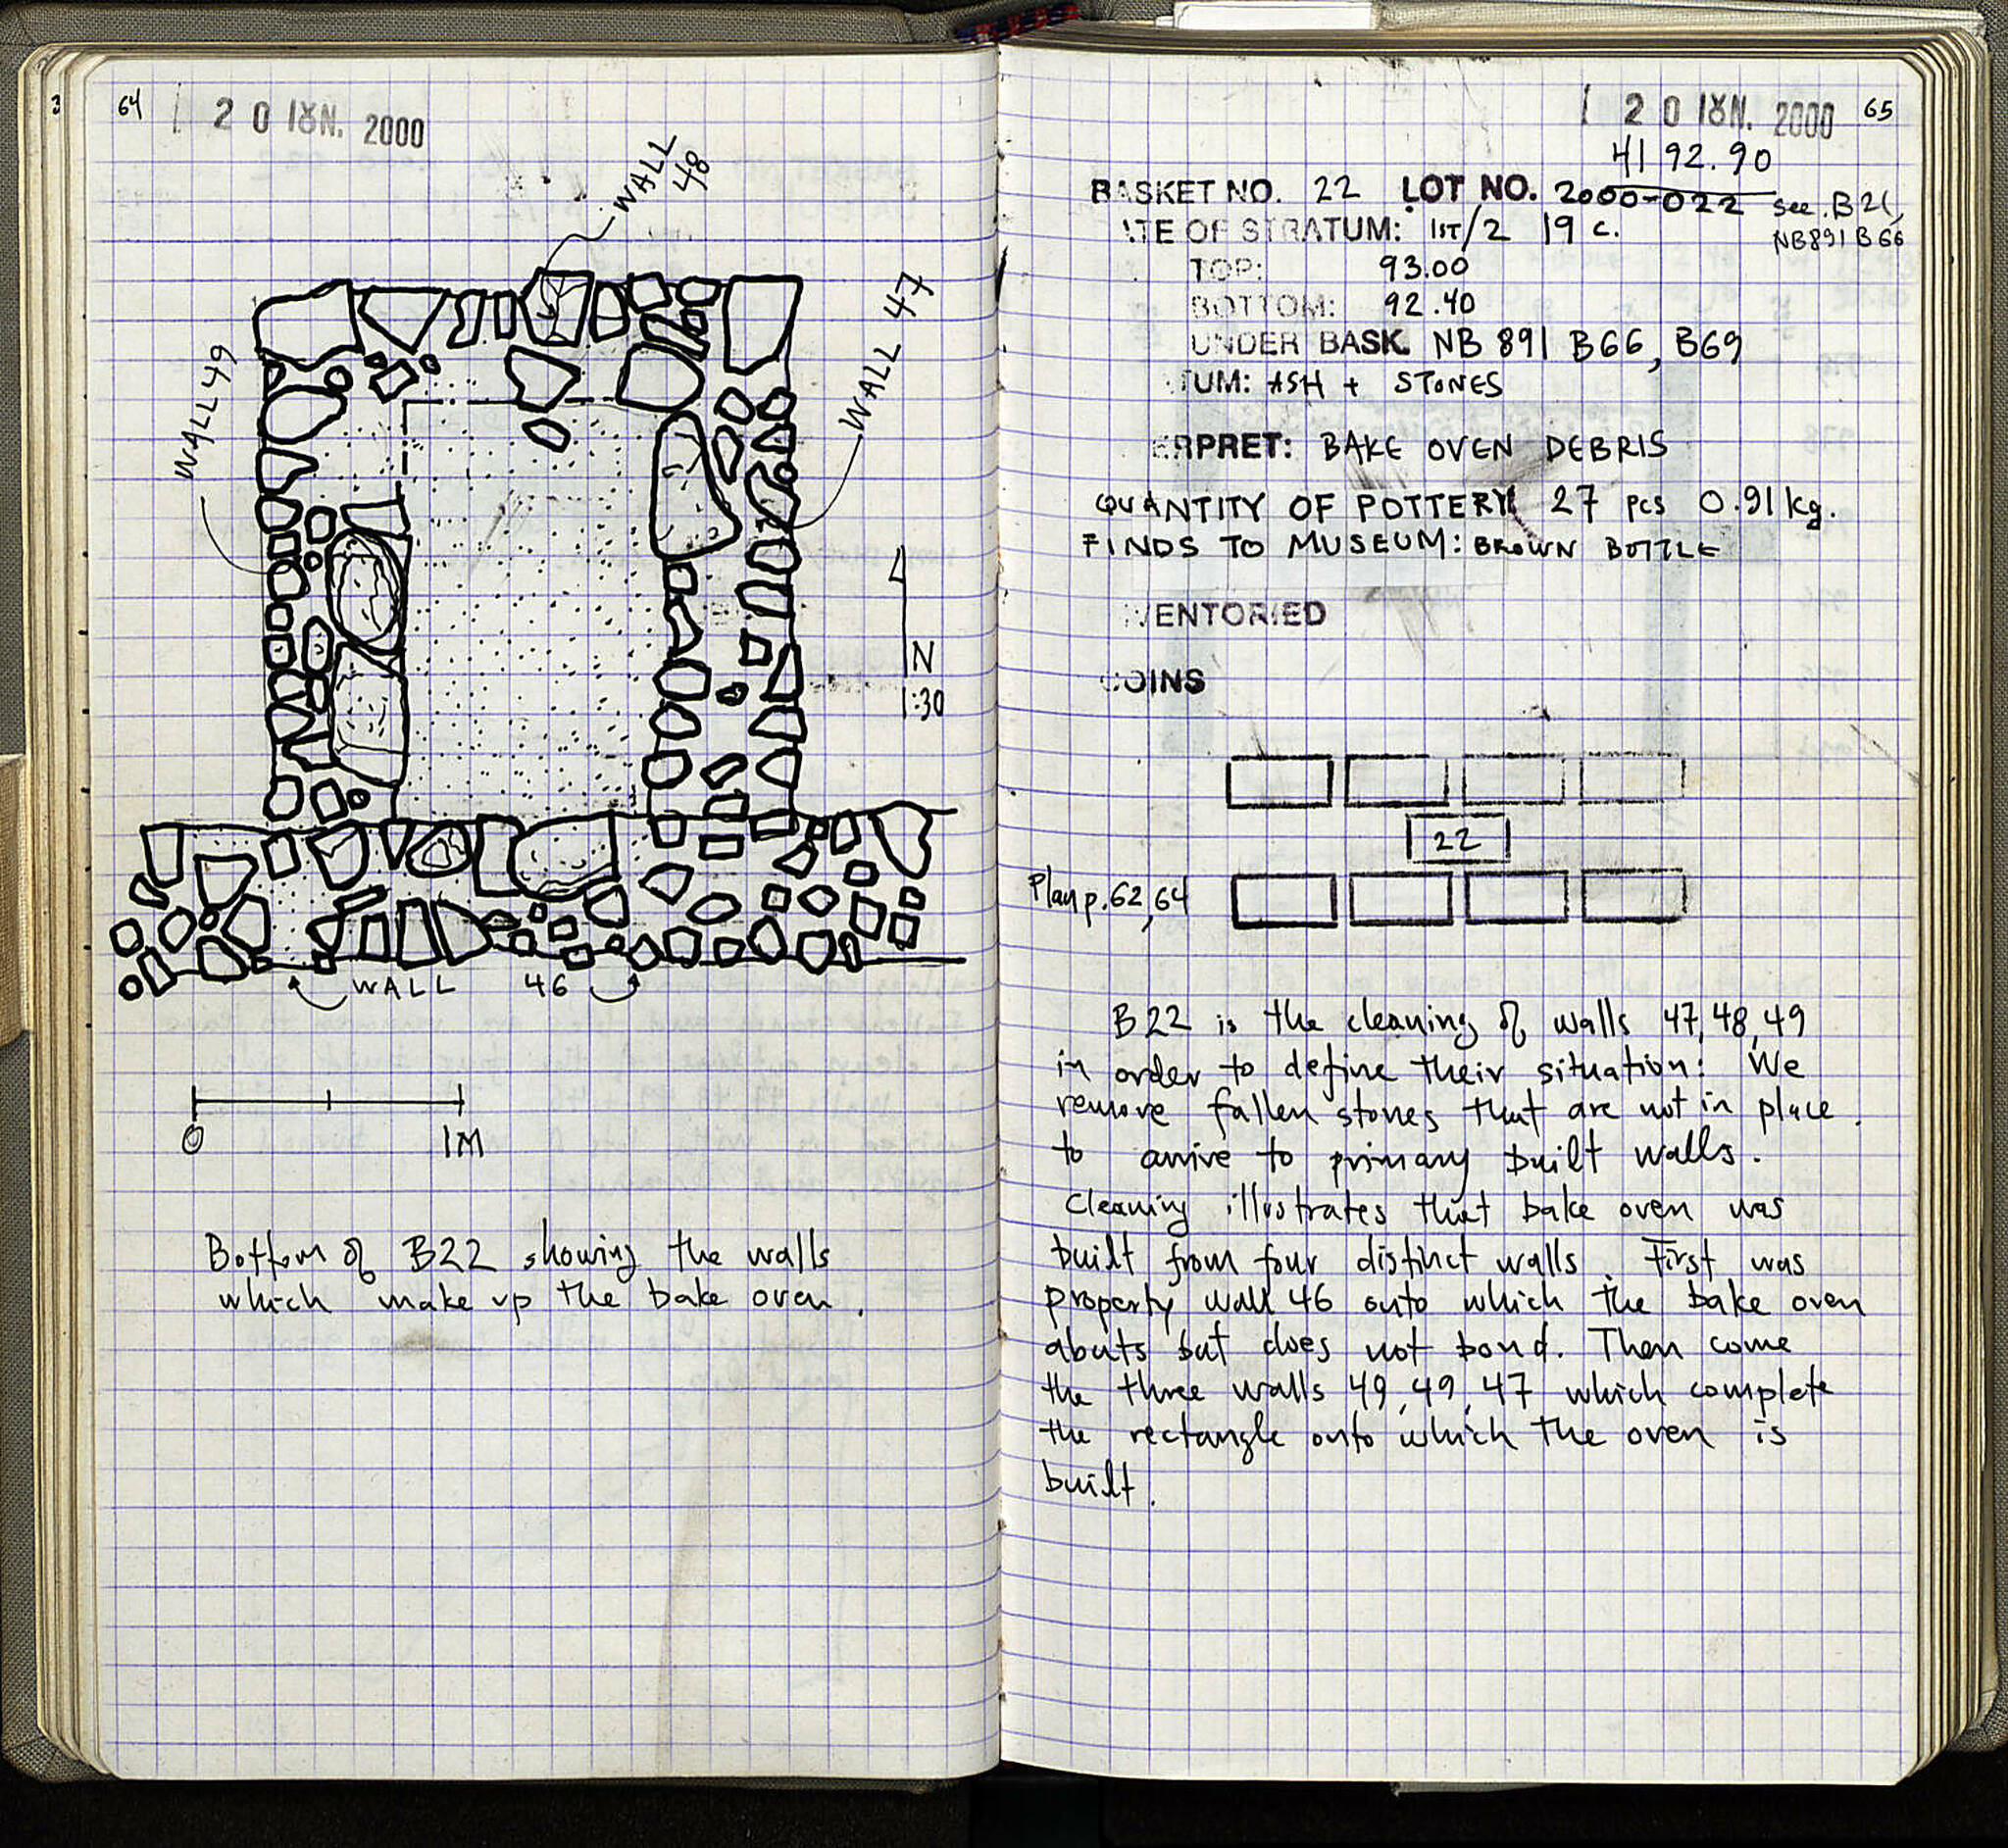 64
20 ΙȣΝ. 2000
WALL
48
WALL 47
WALL 49
N
1:30
WALL 46
0 1M
Bottom of B22 showing the walls
which make up the bake oven.
20 ΙȣΝ. 2000 65
4192.90
BASKET NO. 22 LOT NO. 2000-022 see.
TE OF STRATUM: 1ST/2 19 c. NB891 B66
TOP: 93.00
BOTTOM: 92.40
UNDER BASK. NB 891 B66, B69
TUM: ASH + STONES
ERPRET: BAKE OVEN DEBRIS
QUANTITY OF POTTERY 27 pcs 0.91 kg.
FINDS TO MUSEUM: BROWN BOTTLE
VENTORIED
OINS
22
Plan p. 62, 64
B22 is the cleaning of walls 47, 48, 49
in order to define their situation: We
remove fallen stones that are not in place.
to arrive to primary built walls.
Cleaning illustrates that bake oven was
built from four distinct walls. First was
property wall 46 onto which the bake oven
abuts but does not bond. Then come
the three walls 49, 49, 47 which complete
the rectangle onto which the oven is
built.